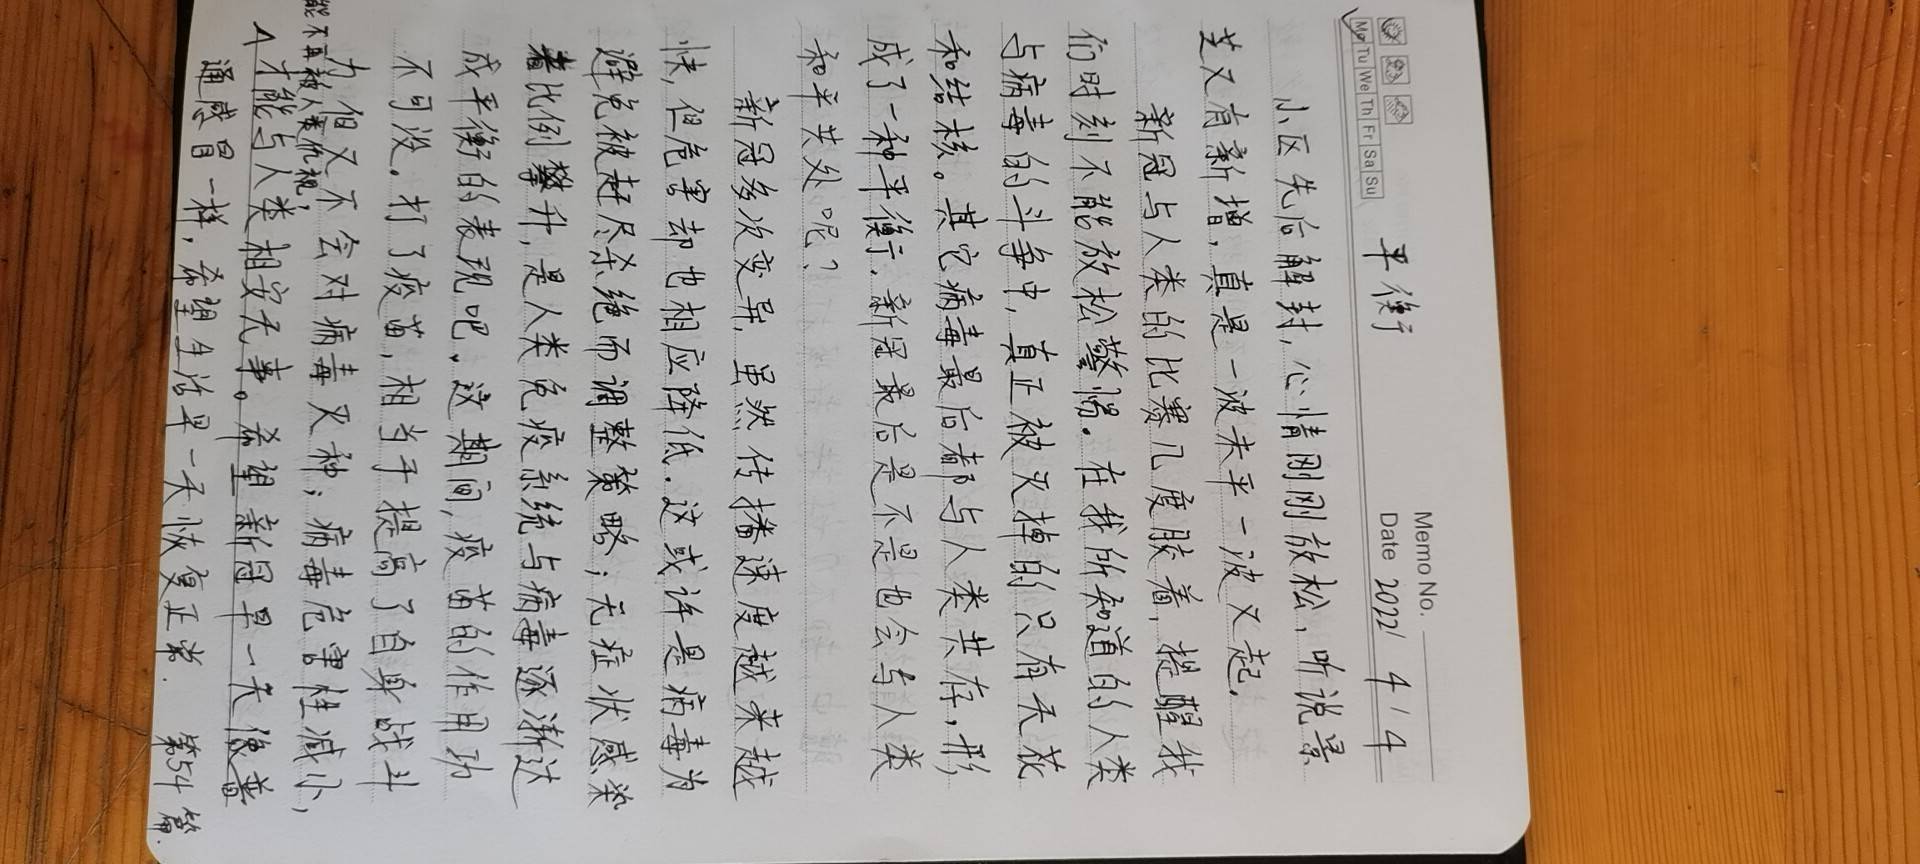 Memo No.
Mo Tu We Th Fr Sa Su
平衡
Date 2022/ 4 / 4
小区先后解封,心情刚刚放松,听说景
芝又有新增,真是一波未平一波又起。
新冠与人类的比赛几度胶着,提醒我
们时刻不能放松警惕。在我所知道的人类
与病毒的斗争中,真正被灭掉的只有天花
和结核。其它病毒最后都与人类共存,形
成了一种平衡,新冠最后是不是也会与人类
和平共处呢?
新冠多次变异,虽然传播速度越来越
快,但危害却也相应降低.这或许是病毒为
避免被赶尽杀绝而调整策略;无症状感染
着比例攀升,是人类免疫系统与病毒逐渐达
成平衡的表现吧,这期间,疫苗的作用功
不可没。打了疫苗,相当于提高了自身战斗
力,但又不会对病毒灭种;病毒危害性减小,
能不再被人类仇视,
才能与人类相安无事。希望新冠早一天像普
通感冒一样,希望生活早一天恢复正常.
第54篇.